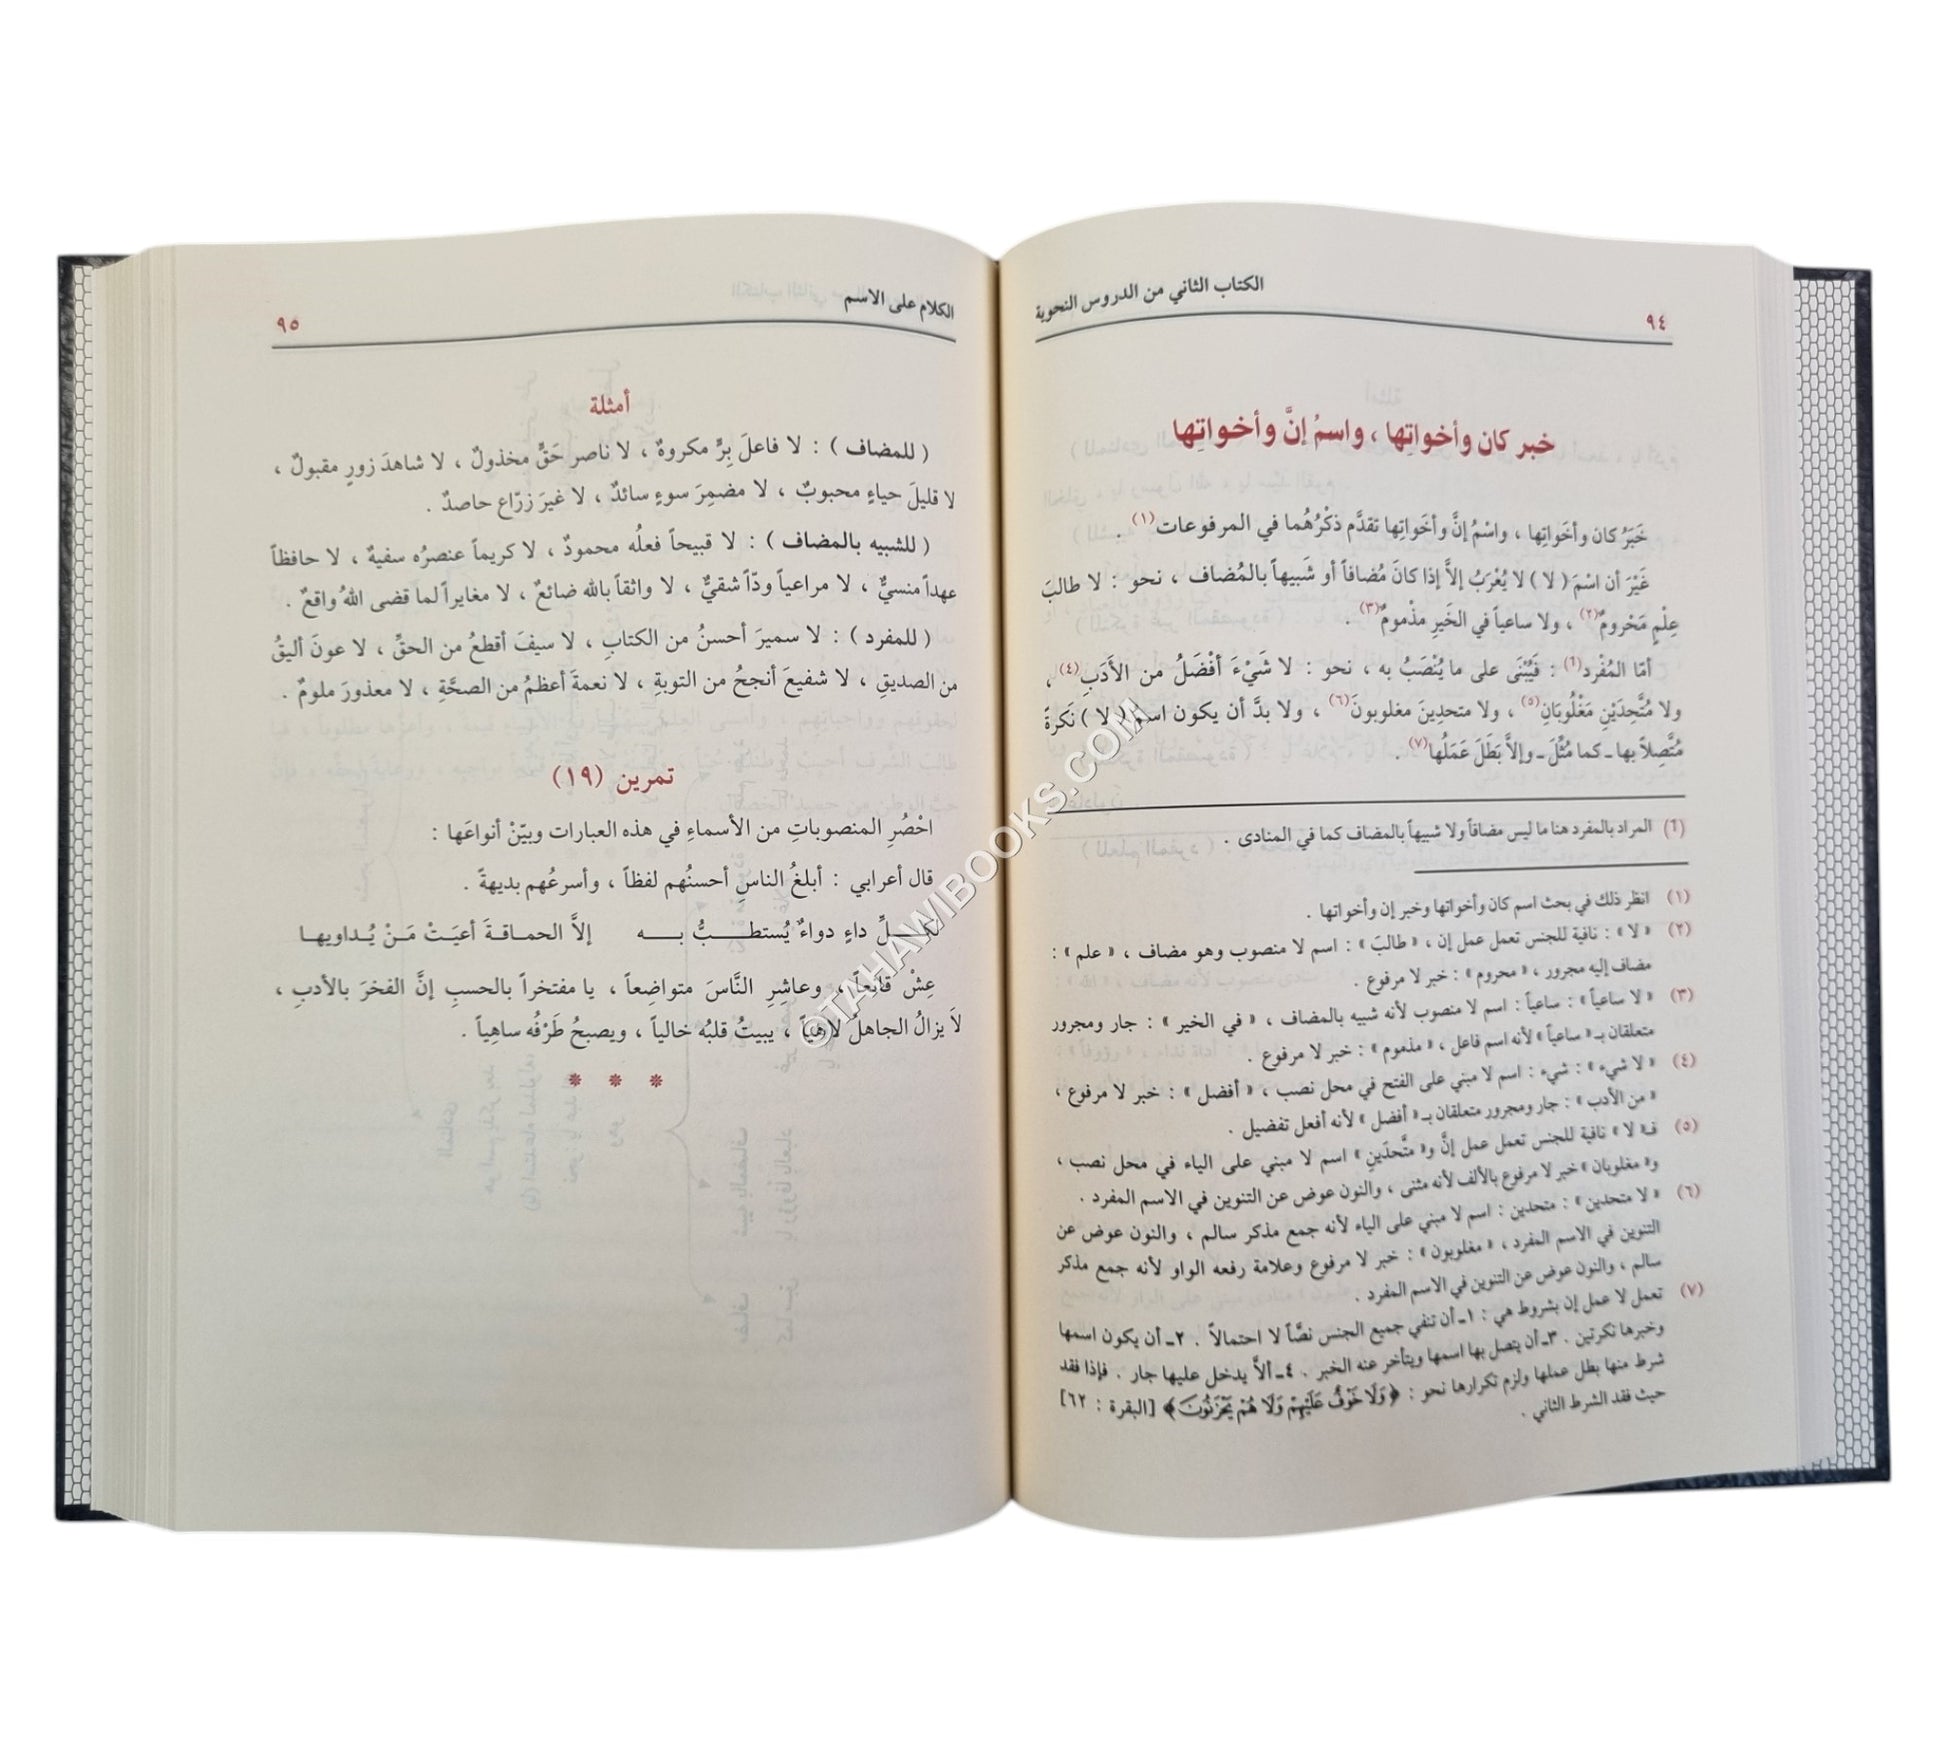 ٩٤
الكتاب الثاني من الدروس النحوية
خبر كان وأخواتِها ، واسمُ إنَّ وأخواتِها
خَبَرُ كان وأخَواتِها ، واسْمُ إنَّ وأخَواتِها تقدَّم ذكْرُهُما في المرفوعات(١) .
غَيْرَ أن اسْمَ ( لا ) لا يُعْرَبُ إلاَّ إذا كانَ مُضافاً أو شَبيهاً بالمُضاف ، نحو : لا طالبَ
عِلْمٍ مَحْرومٌ(٢) ، ولا ساعياً في الخَيرِ مذْمومٌ(٣) .
أمّا المُفْرد(١) : فَيُبْنَى على ما يُنْصَبُ به ، نحو : لا شَيْءَ أفْضَلُ من الأَدَبِ(٤) ،
ولا مُتَّحِدَيْنِ مَغْلُوبَانِ(٥) ، ولا متحدِينَ مغلوبونَ(٦) ، ولا بدَّ أن يكون اسم ( لا ) نَكرةً
مُتَّصِلاً بها ـ كما مُثِّلَ ـ وإلاَّ بَطَلَ عَمَلُها(٧) .
(١) المراد بالمفرد هنا ما ليس مضافاً ولا شبيهاً بالمضاف كما في المنادى .
(١) انظر ذلك في بحث اسم كان وأخواتها وخبر إن وأخواتها .
(٢) « لا » : نافية للجنس تعمل عمل إن ، « طالبَ » : اسم لا منصوب وهو مضاف ، « علم » :
مضاف إليه مجرور ، « محروم » : خبر لا مرفوع .
(٣) « لا ساعياً » : ساعياً : اسم لا منصوب لأنه شبيه بالمضاف ، « في الخير » : جار ومجرور
متعلقان بـ « ساعياً » لأنه اسم فاعل ، « مذموم » : خبر لا مرفوع .
(٤) « لا شيء » : شيء : اسم لا مبني على الفتح في محل نصب ، « أفضل » : خبر لا مرفوع ،
« من الأدب » : جار ومجرور متعلقان بـ « أفضل » لأنه أفعل تفضيل .
(٥) فـ« لا » نافية للجنس تعمل عمل إنَّ و« متَّحدَينِ » اسم لا مبني على الياء في محل نصب ،
و« مغلوبان » خبر لا مرفوع بالألف لأنه مثنى ، والنون عوض عن التنوين في الاسم المفرد .
(٦) « لا متحدين » : متحدين : اسم لا مبني على الياء لأنه جمع مذكر سالم ، والنون عوض عن
التنوين في الاسم المفرد ، « مغلوبون » : خبر لا مرفوع وعلامة رفعه الواو لأنه جمع مذكر
سالم ، والنون عوض عن التنوين في الاسم المفرد .
(٧) تعمل لا عمل إن بشروط هي : ١ـ أن تنفي جميع الجنس نصَّاً لا احتمالاً . ٢ـ أن يكون اسمها
وخبرها نكرتين . ٣ـ أن يتصل بها اسمها ويتأخر عنه الخبر . ٤ـ ألاَّ يدخل عليها جار . فإذا فقد
شرط منها بطل عملها ولزم تكرارها نحو : ﴿ وَلَا خَوْفٌ عَلَيْهِمْ وَلَا هُمْ يَحْزَنُونَ ﴾ [البقرة : ٦٢]
حيث فقد الشرط الثاني .
الكلام على الاسم
٩٥
أمثلة
( للمضاف ) : لا فاعلَ بِرٍّ مكروهٌ ، لا ناصر حَقٍّ مخذولٌ ، لا شاهدَ زورٍ مقبولٌ ،
لا قليلَ حياءٍ محبوبٌ ، لا مضمِرَ سوءٍ سائدٌ ، لا غيرَ زرّاع حاصدٌ .
( للشبيه بالمضاف ) : لا قبيحاً فعلُه محمودٌ ، لا كريماً عنصرُه سفيهٌ ، لا حافظاً
عهداً منسيٌّ ، لا مراعياً ودّاً شقيٌّ ، لا واثقاً بالله ضائعٌ ، لا مغايراً لما قضى اللهُ واقعٌ .
( للمفرد ) : لا سميرَ أحسنُ من الكتابِ ، لا سيفَ أقطعُ من الحقِّ ، لا عونَ أليقُ
من الصديقِ ، لا شفيعَ أنجحُ من التوبةِ ، لا نعمةَ أعظمُ من الصحَّةِ ، لا معذورَ ملومٌ .
تمرين (١٩)
احْصُرِ المنصوباتِ من الأسماءِ في هذه العبارات وبيّنْ أنواعَها :
قال أعرابي : أبلغُ الناسِ أحسنُهم لفظاً ، وأسرعُهم بديهةً .
لكـلِّ داءٍ دواءٌ يُستطـبُّ بـه إلاَّ الحماقةَ أعيَتْ مَنْ يُداويها
عِشْ قانعاً ، وعاشِرِ النَّاسَ متواضِعاً ، يا مفتخراً بالحسبِ إنَّ الفخرَ بالأدبِ ،
لاَ يزالُ الجاهلُ لاهياً ، يبيتُ قلبُه خالياً ، ويصبحُ طَرْفُه ساهِياً .
* * *
©TAHAWIBOOKS.COM